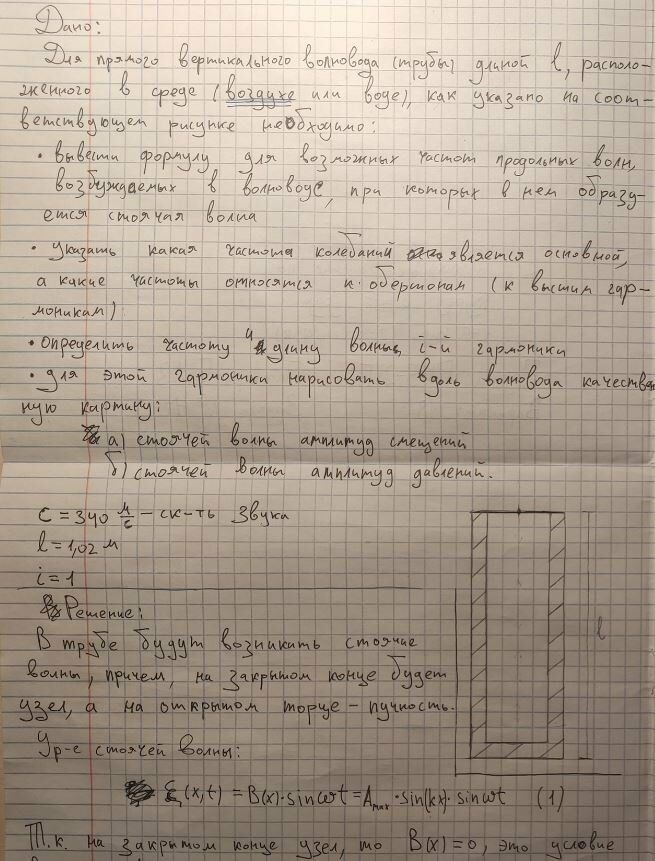 Дано:
Для прямого вертикального волновода (трубы) длиной l, располо-
женного в среде (воздухе или воде), как указано на соот-
ветствующем рисунке необходимо:
• вывести формулу для возможных частот продольных волн,
возбуждаемых в волноводе, при которых в нем образу-
ется стоячая волна
• указать какая частота колебаний является основной,
а какие частоты относятся к обертонам (к высшим гар-
моникам)
• определить частоту и длину волны i-й гармоники
• для этой гармоники нарисовать вдоль волновода качествен
ную картину:
а) стоячей волны амплитуд смещений
б) стоячей волны амплитуд давлений.
c = 340 м/с – ск-ть звука
l = 1,02 м
i = 1
l
Решение:
В трубе будут возникать стоячие
волны, причем, на закрытом конце будет
узел, а на открытом торце – пучность.
Ур-е стоячей волны:
ξ(x,t) = B(x)·sinωt = A_max·sin(kx)·sinωt (1)
Т.к. на закрытом конце узел, то B(x) = 0, это условие